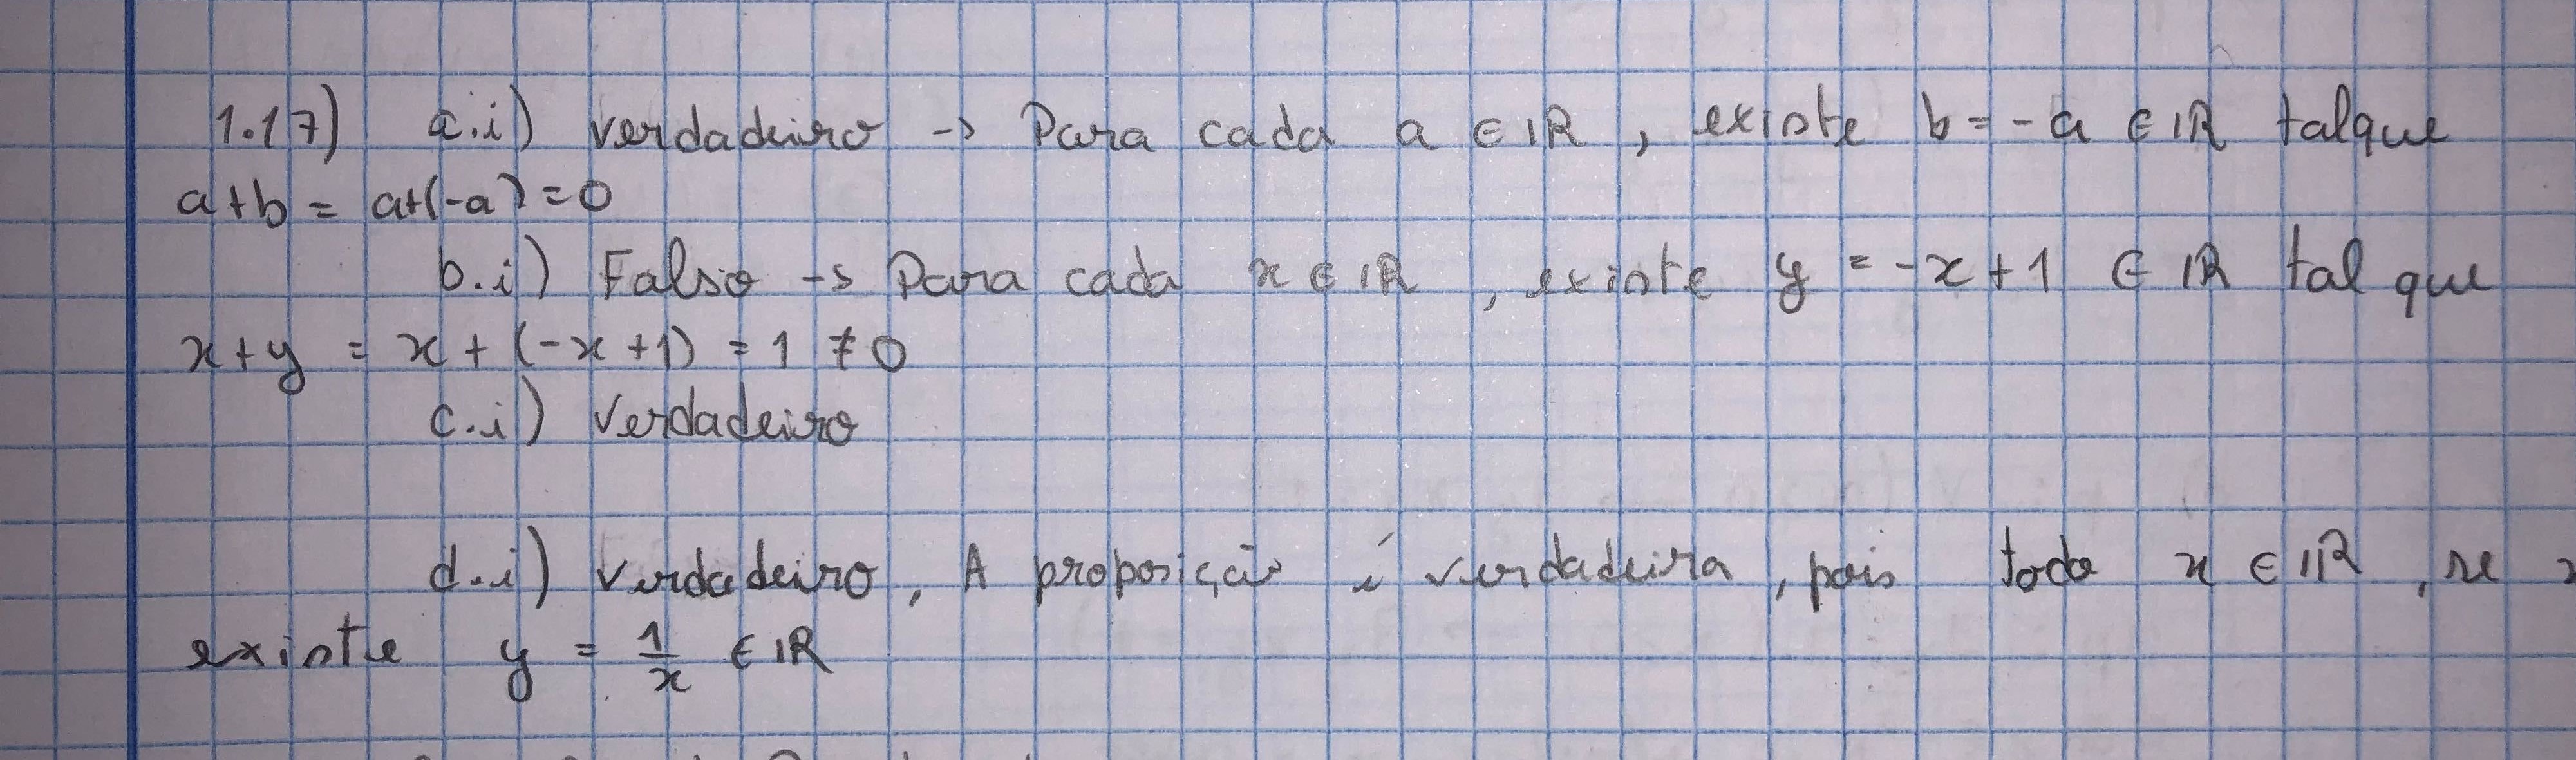 1.17) a.i) verdadeiro -> Para cada a ∈ IR, existe b = -a ∈ IR talque
a+b = a+(-a) = 0
b.i) Falso -> Para cada x ∈ IR, existe y = -x + 1 ∈ IR tal que
x+y = x + (-x +1) = 1 ≠ 0
c.i) verdadeiro
d.i) verdadeiro, A proposição é verdadeira, pois todo x ∈ IR, se
existe y = 1/x ∈ IR